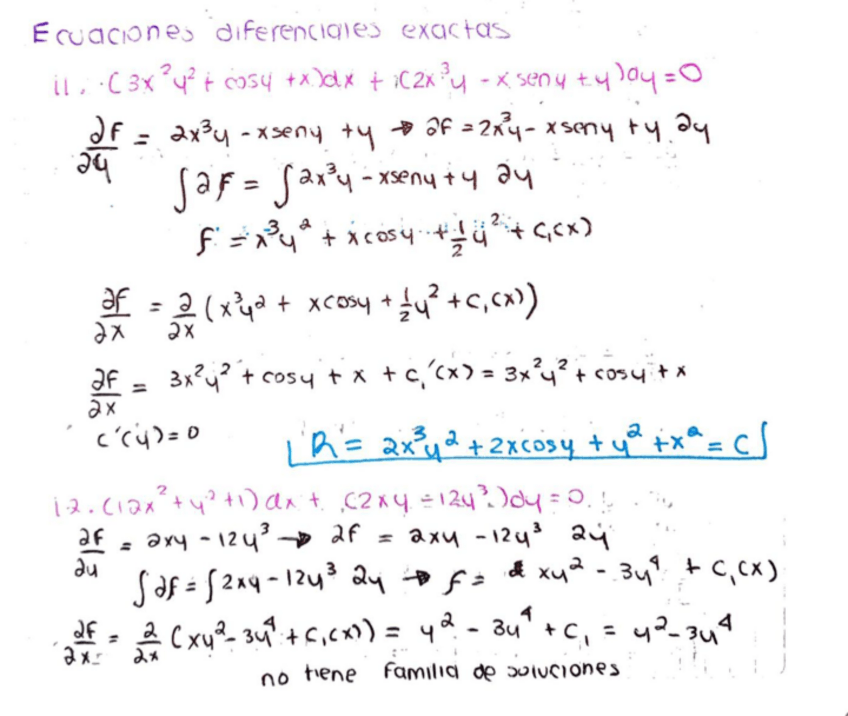 Ecuaciones diferenciales exactas
11. (3x²y² + cosy + x)dx + (2x³y - x seny + y)dy = 0
∂F/∂y = 2x³y - xseny + y → ∂F = 2x³y - xseny + y ∂y
∫∂F = ∫2x³y - xseny + y ∂y
f = x³y² + xcosy + 1/2 y² + C₁(x)
∂F/∂x = ∂/∂x (x³y² + xcosy + 1/2 y² + C₁(x))
∂F/∂x = 3x²y² + cosy + x + C₁'(x) = 3x²y² + cosy + x
C'(y) = 0
R = 2x³y² + 2xcosy + y² + x² = C
12. (12x² + y² + 1)dx + (2xy - 12y³)dy = 0.
∂F/∂y = 2xy - 12y³ → ∂F = 2xy - 12y³ ∂y
∫∂F = ∫2xy - 12y³ ∂y → f = xy² - 3y⁴ + C₁(x)
∂F/∂x = ∂/∂x (xy² - 3y⁴ + C₁(x)) = y² - 3y⁴ + C₁ = y² - 3y⁴
no tiene familia de soluciones